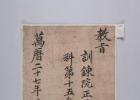 教旨
訓鍊院正
科第十五
萬曆二十七年